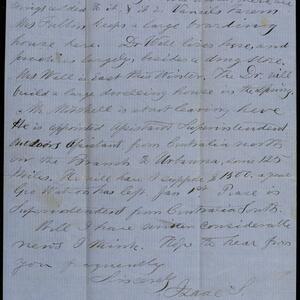 wings added to it, & it is
Mrs Fuller keeps a large boarding
house here. Dr Wall lives here, and
practices largely, besides a drug store.
Mrs Wall is East this Winter. The Dr. will
build a large dwelling house in the Spring.
Mr. Mitchell is about leaving here
He is appointed Assistant Superintendent
Assistant from Centralia north
on the Branch to Urbanna, some 125
Miles. He will have I suppose $1800. a year
Geo Watson has left. Jan 1st Place is
Superintendent from Centralia South.
Well I have written considerable
news I think. Hope to hear from
you frequently
Sincerely
Isaac S.